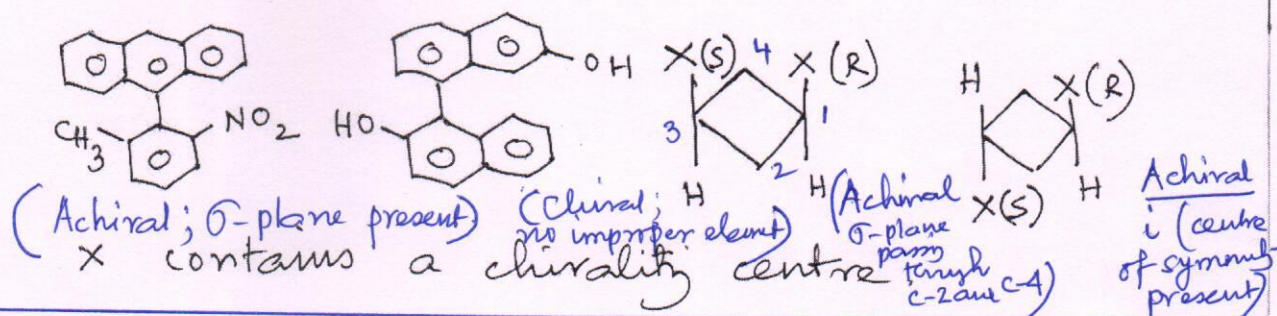 OH
X(S) 4 X (R)
H X(R)
CH3 NO2 HO
3 1
2
H H
X(S) H
(Achiral; σ-plane present)
(Chiral;
no improper element)
(Achiral
σ-plane
pass
through
C-2 and C-4)
Achiral
i (centre
of symmetry
present)
X contains a chirality centre